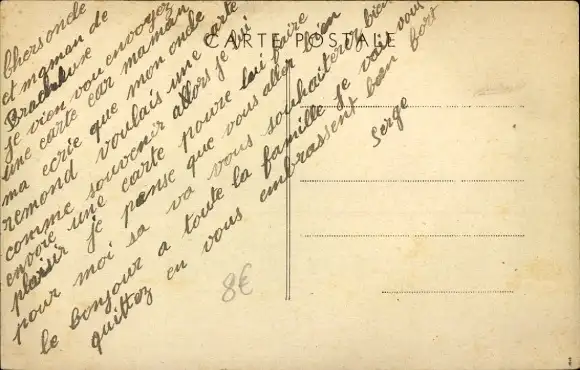 CARTE POSTALE
Chers oncle
et maman de
Bradeluxe
je vien vou envoyez
une carte car maman
ma ecrie que mon oncle
remond voulais une carte
comme souvenir allors je lui
envoie une carte pour lui faire
plaisir je panse que vous aller bien
pour moi sa va vous souhaiter bien
le bonjour a toute la famille je vai vous
quittez en vous embrassent bien fort
Serge
8€